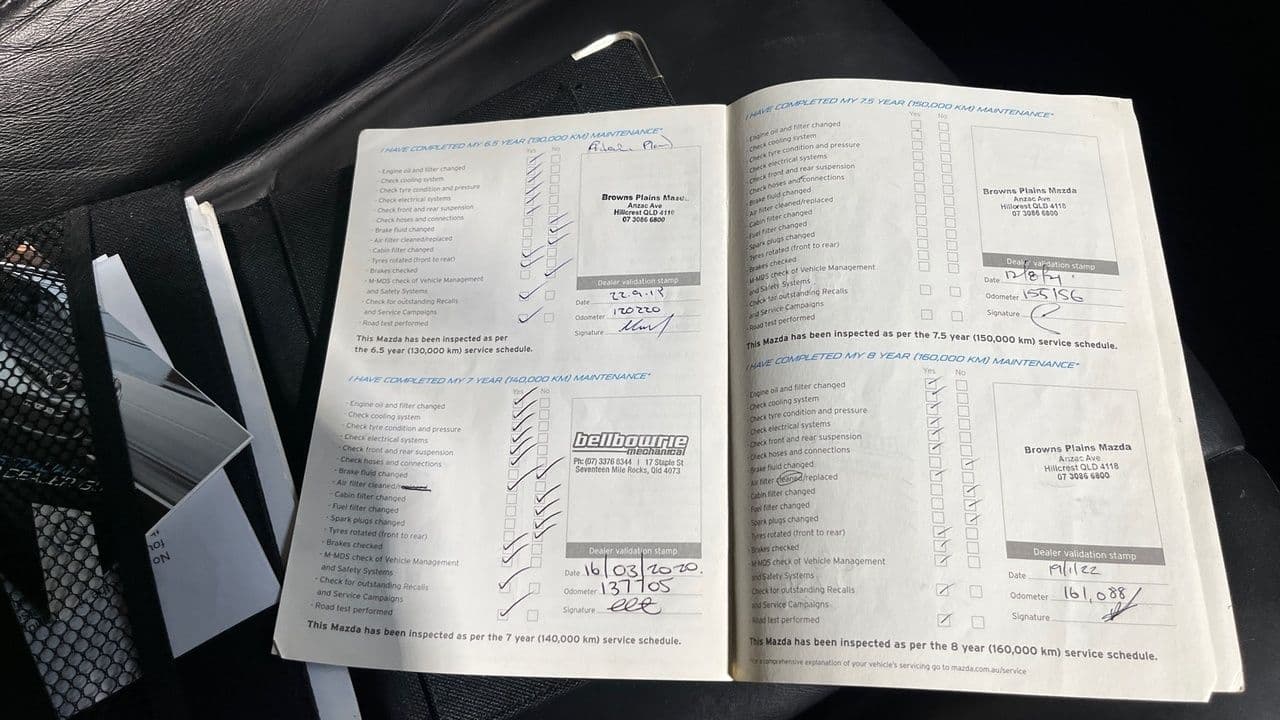 I HAVE COMPLETED MY 6.5 YEAR (130,000 KM) MAINTENANCE*
Yes No
- Engine oil and filter changed
- Check cooling system
- Check tyre condition and pressure
- Check electrical systems
- Check front and rear suspension
- Check hoses and connections
- Brake fluid changed
- Air filter cleaned/replaced
- Cabin filter changed
- Tyres rotated (front to rear)
- Brakes checked
- M-MDS check of Vehicle Management
and Safety Systems
- Check for outstanding Recalls
and Service Campaigns
- Road test performed
Browns Plains Maz
Anzac Ave
Hillcrest QLD 4118
07 3086 6800
Dealer validation stamp
Date
Odometer 120220
Signature
This Mazda has been inspected as per
the 6.5 year (130,000 km) service schedule.
I HAVE COMPLETED MY 7 YEAR (140,000 KM) MAINTENANCE*
Yes No
- Engine oil and filter changed
- Check cooling system
- Check tyre condition and pressure
- Check electrical systems
- Check front and rear suspension
- Check hoses and connections
- Brake fluid changed
- Air filter cleaned/
- Cabin filter changed
- Fuel filter changed
- Spark plugs changed
- Tyres rotated (front to rear)
- Brakes checked
- M-MDS check of Vehicle Management
and Safety Systems
- Check for outstanding Recalls
and Service Campaigns
- Road test performed
bellbowrie
mechanical
Ph: (07) 3376 6344 | 17 Staple St
Seventeen Mile Rocks, Qld 4073
Dealer validation stamp
Date 16/03/2020.
Odometer 137705
Signature
This Mazda has been inspected as per the 7 year (140,000 km) service schedule.
I HAVE COMPLETED MY 7.5 YEAR (150,000 KM) MAINTENANCE*
Yes No
- Engine oil and filter changed
- Check cooling system
- Check tyre condition and pressure
- Check electrical systems
- Check front and rear suspension
- Check hoses and connections
- Brake fluid changed
- Air filter cleaned/replaced
- Cabin filter changed
- Fuel filter changed
- Spark plugs changed
- Tyres rotated (front to rear)
- Brakes checked
- M-MDS check of Vehicle Management
and Safety Systems
- Check for outstanding Recalls
and Service Campaigns
- Road test performed
Browns Plains Mazda
Anzac Ave
Hillcrest QLD 4118
07 3086 6800
Dealer validation stamp
Date 12/8/21
Odometer 155156
Signature
This Mazda has been inspected as per the 7.5 year (150,000 km) service schedule.
I HAVE COMPLETED MY 8 YEAR (160,000 KM) MAINTENANCE*
Yes No
- Engine oil and filter changed
- Check cooling system
- Check tyre condition and pressure
- Check electrical systems
- Check front and rear suspension
- Check hoses and connections
- Brake fluid changed
- Air filter cleaned/replaced
- Cabin filter changed
- Fuel filter changed
- Spark plugs changed
- Tyres rotated (front to rear)
- Brakes checked
- M-MDS check of Vehicle Management
and Safety Systems
- Check for outstanding Recalls
and Service Campaigns
- Road test performed
Browns Plains Mazda
Anzac Ave
Hillcrest QLD 4118
07 3086 6800
Dealer validation stamp
Date 19/1/22
Odometer 161,088
Signature
This Mazda has been inspected as per the 8 year (160,000 km) service schedule.
comprehensive explanation of your vehicle's servicing go to mazda.com.au/service